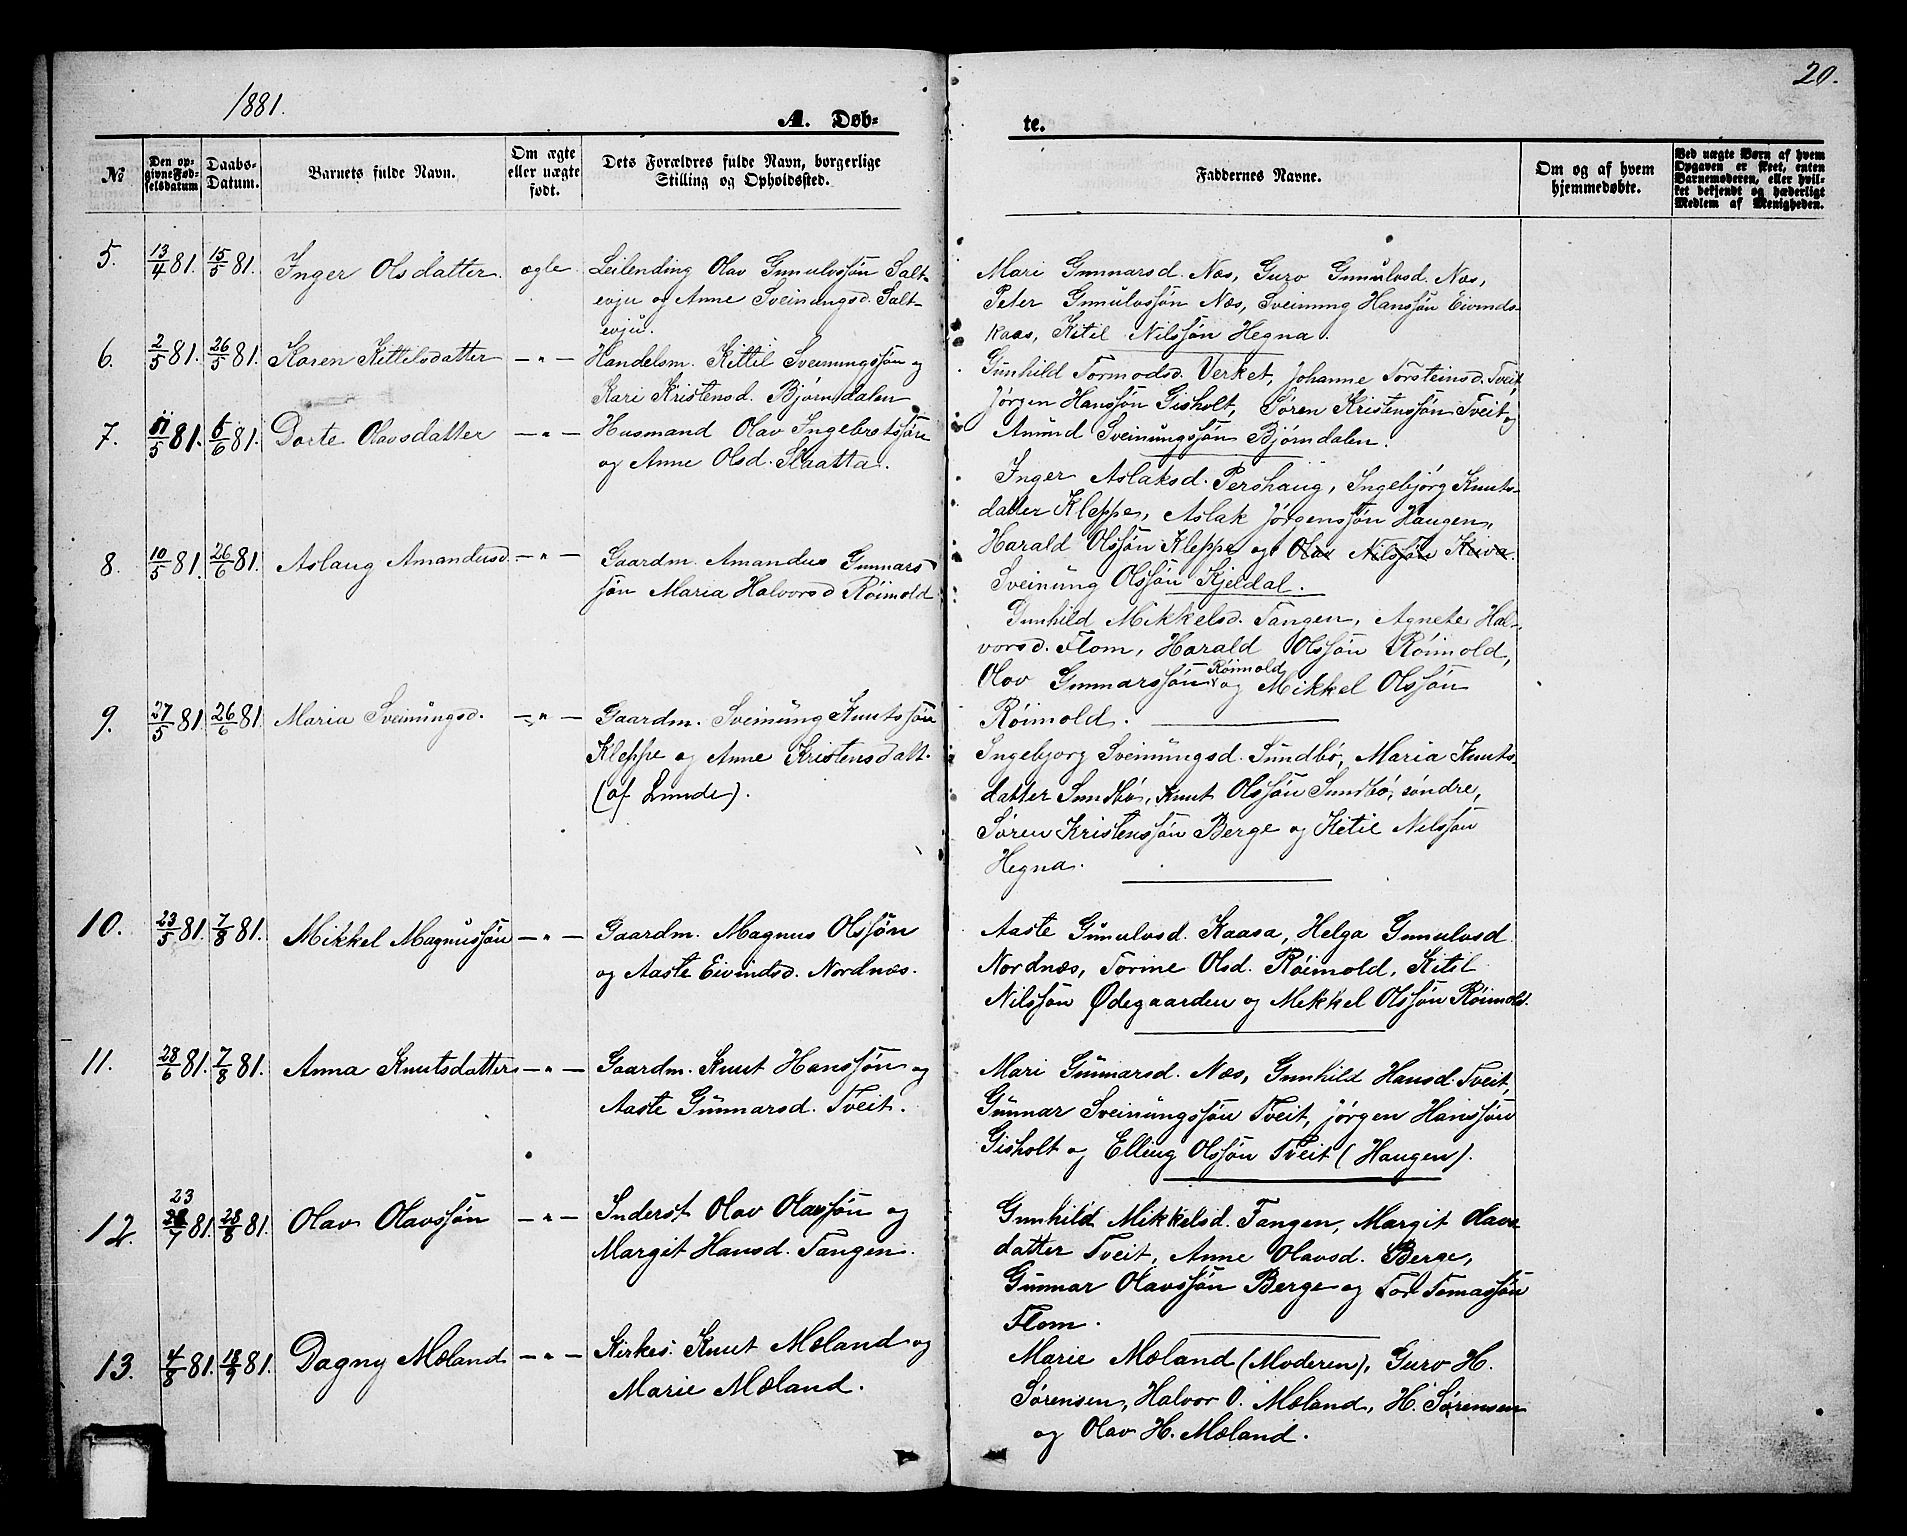 1881.
20.
A. Døb-
te.
№
Den op-
givne Fød-
selsdatum
Daabs-
Datum.
Barnets fulde Navn.
Om ægte
eller uægte
født.
Dets Forældres fulde Navn, borgerlige
Stilling og Opholdssted.
Faddernes Navne.
Om og af hvem
hjemmedøbte.
Ved uægte Børn af hvem
Opgaven er skeet, enten
Barnemoderen, eller hvil-
ket bekjendt og hæderligt
Medlem af Menigheden.
5. 13/4 81. 15/5 81. Inger Olsdatter. ægte Leilending Olav Gunulvssøn Salt-
evju og Anne Sveinungsd. Salt-
evju.
Mari Gunnarsd. Næs, Guro Gunulvsd. Næs,
Peter Gunulvssøn Næs, Sveinung Hanssøn Eivinds-
kaas, Kitil Nilssøn Hegna.
6. 2/5 81. 26/5 81. Karen Kittilsdatter —"— Handelsm. Kittil Sveinungssøn og
Kari Kristensd. Bjørndalen
Gunhild Tormodsd. Verket, Johanne Torsteinsd. Tveit,
Jørgen Hanssøn Gisholt, Søren Kristenssøn Tveit og
Amund Sveinungssøn Bjørndalen.
7. 11/5 81. 6/6 81. Dorte Olavsdatter —"— Husmand Olav Ingebretssøn
og Anne Olsd. Slaatta.
Inger Aslaksd. Pershaug, Ingebjørg Knuts-
datter Kleppe, Aslak Jørgenssøn Haugen,
Harald Olssøn Kleppe og Olav Nilssøn
Sveinung Olssøn Kjeldal.
8. 10/5 81. 26/6 81. Aslaug Amandusd. —"— Gaardm. Amandus Gunnars
søn Maria Halvorsd Röimold
Gunhild Mikkelsd. Tangen, Agnete Hal-
vorsd. Flom, Harald Olssøn Röimold,
Olav Gunnarssøn Röimold og Mikkel Olssøn
Röimold.
9. 27/5 81. 26/6 81. Maria Sveinungsd. —"— Gaardm. Sveinung Knutssøn
Kleppe og Anne Kristensdatt.
(af Lunde).
Ingebjorg Sveinungsd. Sundbö, Maria Knuts-
datter Sundbö, Knut Olssøn Sundbö, söndre,
Søren Kristenssøn Berge og Ketil Nilssøn
Hegna.
10. 23/5 81. 7/8 81. Mikkel Magnussøn —"— Gaardm. Magnus Olssøn
og Aaste Eivindsd. Nordnæs.
Aaste Gunulvsd. Kaasa, Helga Gunulvsd
Nordnæs, Torine Olsd. Röimold, Kitil
Nilssøn Ødegaarden og Mikkel Olssøn Röimold.
11. 28/6 81. 7/8 81. Anna Knutsdatter —"— Gaardm. Knut Hanssøn og
Aaste Gunnarsd. Tveit.
Mari Gunnarsd. Næs, Gunhild Hansd. Tveit,
Gunnar Sveinungssøn Tveit, Jørgen Hanssøn
Gisholt og Elling Olssøn Tveit (Haugen).
12. 23/7 81. 28/8 81. Olav Olavssøn —"— Inderst Olav Olavssøn og
Margit Hansd. Tangen.
Gunhild Mikkelsd. Tangen, Margit Olavs
datter Tveit, Anne Olavsd. Berge,
Gunnar Olavssøn Berge og Tor Tomassøn
Flom.
13. 4/8 81. 18/9 81. Dagny Mæland —"— Kirkes. Knut Mæland og
Marie Mæland.
Marie Mæland (Moderen), Guro H.
Sørensen, Halvor O. Mæland, H. Sørensen
og Olav H. Mæland.